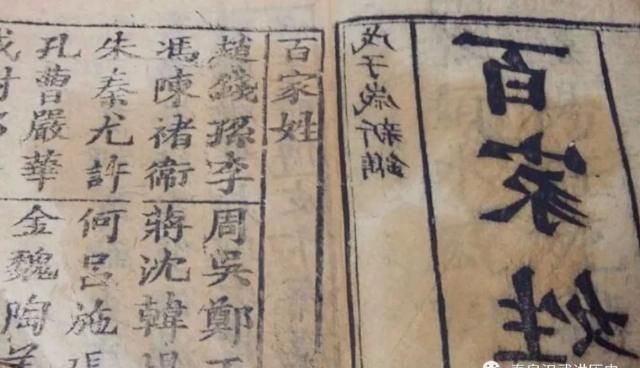 百家姓
戊子歲新鐫
百家姓
趙錢孫李 周吳鄭
馮陳褚衛 蔣沈韓
朱秦尤許 何呂施
孔曹嚴華 金魏陶